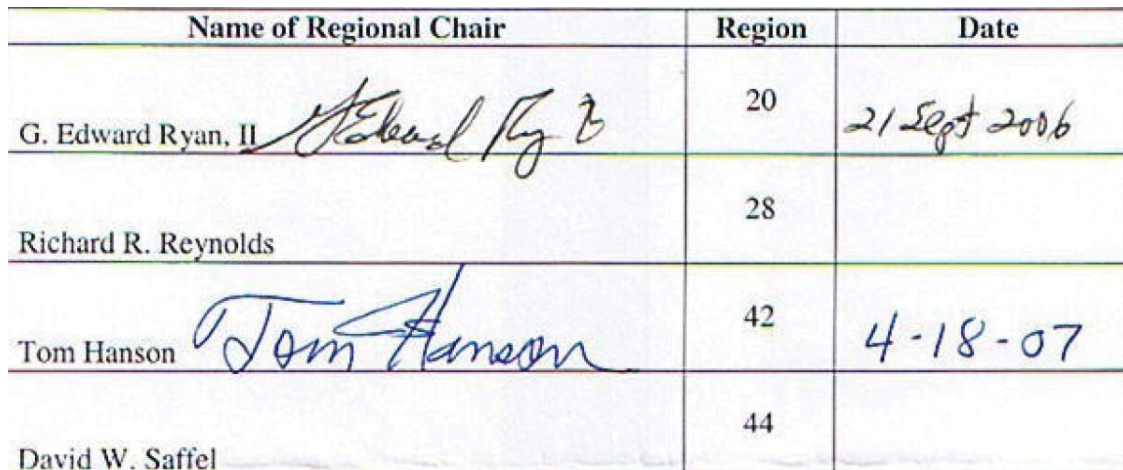 Name of Regional Chair Region Date
G. Edward Ryan, II G Edward Ryan II 20 21 Sept 2006
Richard R. Reynolds 28
Tom Hanson Tom Hanson 42 4-18-07
David W. Saffel 44